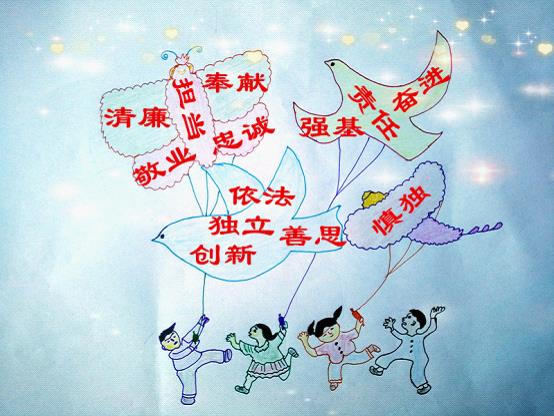 奉献
清廉
担当
忠诚
敬业
奋进
责任
强基
依法
独立
善思
创新
慎独